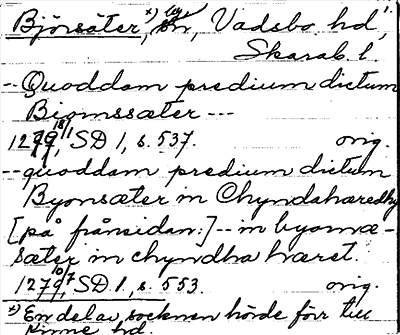 Björsäter, x) sn, Vadsbo hd,
Skarab. l.
-- Quoddam predium dictum
Biornssæter ---
1279, SD 1, s. 537. orig.
-- quoddam predium dictum
Byornsæter in Chyndahæredhy
[på frånsidan:] -- in byornæ-
sæter in chyndha hæret.
1279 10/7, SD 1, s. 553. orig.
x) En del av socknen hörde förr till
Kinne hd.